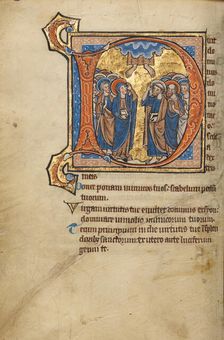 D
ixit
do
mi
nus
do
mi
no
me
o
sede
a
dex
tris
meis
Donec ponam inimicos tuos: scabellum pedum
tuorum.
Virgam virtutis tue emittet dominus ex syon:
dominare in medio inimicorum tuorum.
Tecum principium in die virtutis tue in splen
doribus sanctorum ex utero ante luciferum
genui te.